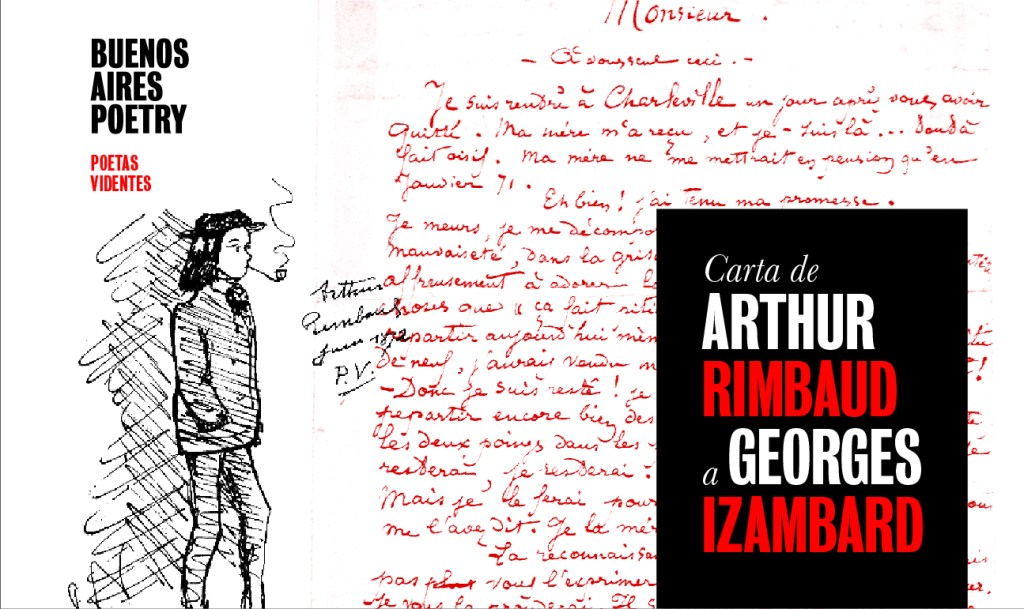 BUENOS
AIRES
POETRY
POETAS
VIDENTES
Arthur
Rimbaud
juin 1872
P.V.
Monsieur.
- À vous seul ceci. -
Je suis rentré à Charleville un jour après vous avoir
quitté. Ma mère m'a reçu, et je - suis là... tout à
fait oisif. Ma mère ne me mettrait en pension qu'en
Janvier 71.
Eh bien! j'ai tenu ma promesse.
Je meurs, je me décompo
mauvaiseté, dans la gris
affreusement à adorer l
choses que "ça fait piti
repartir aujourd'hui mêm
de neuf, j'aurais vendu m
- Donc je suis resté! je
repartir encore bien des
les deux poings dans les
resterai, je resterai!
Mais je le ferai pour
me l'avez dit. Je la mé
La reconnaissa
pas plus vous l'exprimer
Je vous la prouverai. Il s
Carta de
ARTHUR
RIMBAUD
a GEORGES
IZAMBARD